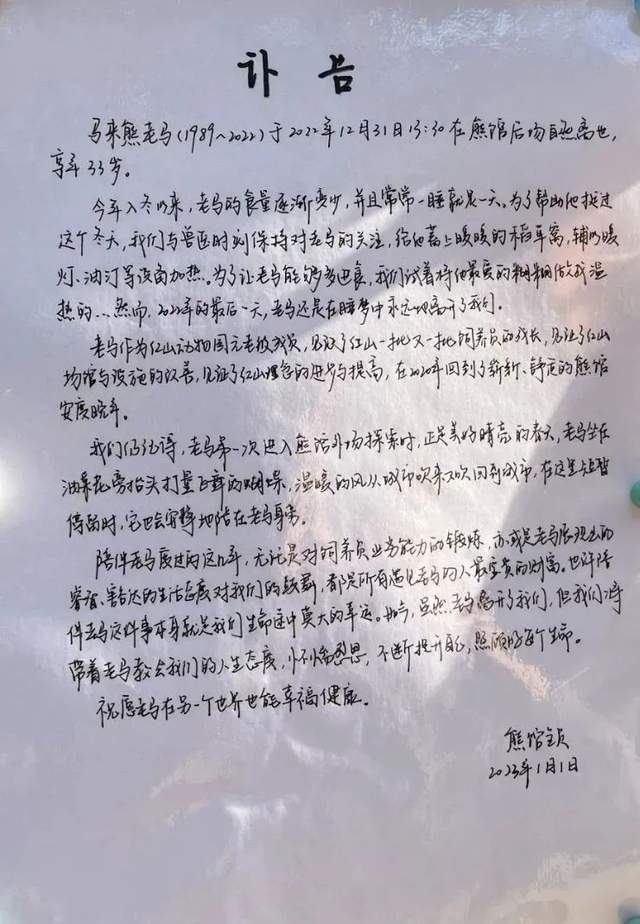 讣告
马来熊老马(1989~2022)于2022年12月31日13:30在熊馆后场自然离世,
享年33岁。
今年入冬以来,老马的食量逐渐变少,并且常常一睡就是一天。为了帮助他挺过
这个冬天,我们与兽医时刻保持对老马的关注,给他盖上暖暖的稻草窝,辅以暖
灯、油汀等设备加热。为了让老马能够多进食,我们试着将他最爱的糊糊做成温
热的…然而,2022年的最后一天,老马还是在睡梦中永远地离开了我们。
老马作为红山动物园元老级成员,见证了红山一批又一批饲养员的成长,见证了红山
场馆与设施的改善,见证了红山理念的进步与提高,在2020年回到了崭新、舒适的熊馆
安度晚年。
我们仍记得,老马第一次进入熊活外场探索时,正是美好晴亮的春天,老马坐在
油菜花旁抬头打量飞舞的蝴蝶,温暖的风从城市吹来又吹回到城市,在这里短暂
停留时,它也会安静地陪在老马身旁。
陪伴老马度过的这几年,无论是对饲养员业务能力的锻炼,亦或是老马展现出的
睿智、豁达的生活态度对我们的鼓舞,都是所有遇见老马的人最宝贵的财富。也许陪
伴老马这件事本身就是我们生命途中莫大的幸运。如今,虽然老马离开了我们,但我们将
带着老马教会我们的人生态度,心怀感恩,不断提升自己,照顾好每个生命。
祝愿老马在另一个世界也能幸福健康。
熊馆全员
2023年1月1日